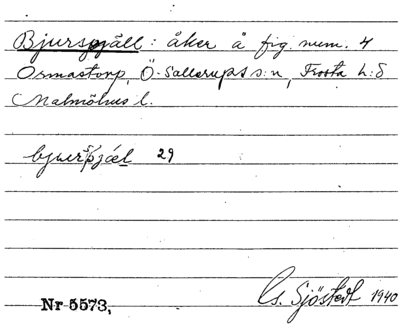 Bjurspjäll: åker å fig. num. 4
Ormastorp, Ö. Sallerups s:n, Frosta h:d
Malmöhus l.
bjuerspjæl 29
G. Sjöstedt 1940
Nr 5573,